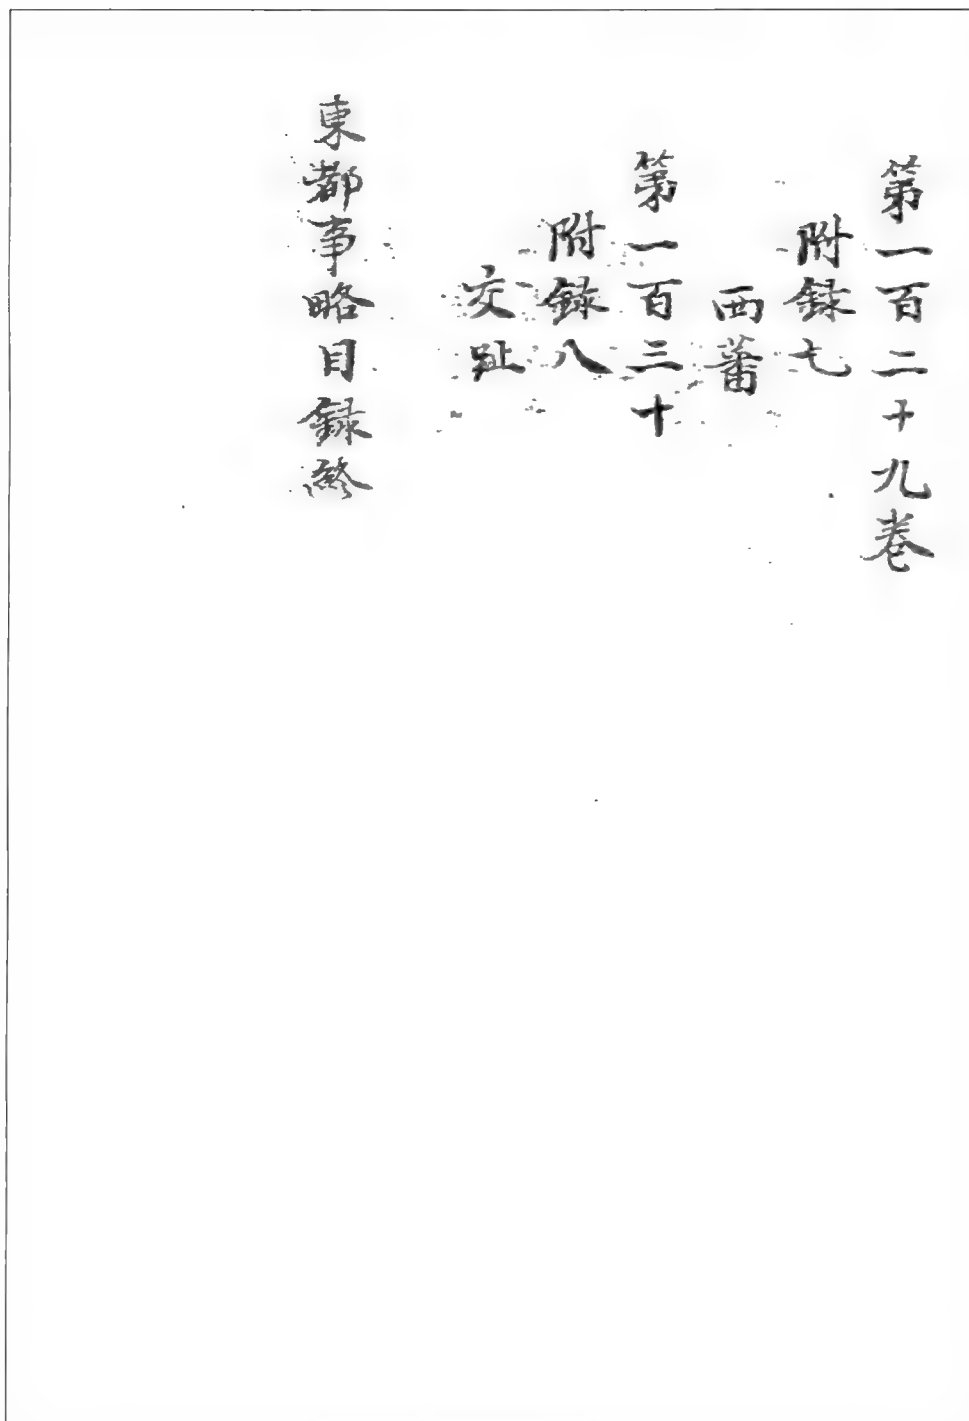 第一百二十九卷
附録七
西蕃
第一百三十
附録八
交趾
東都事略目録終